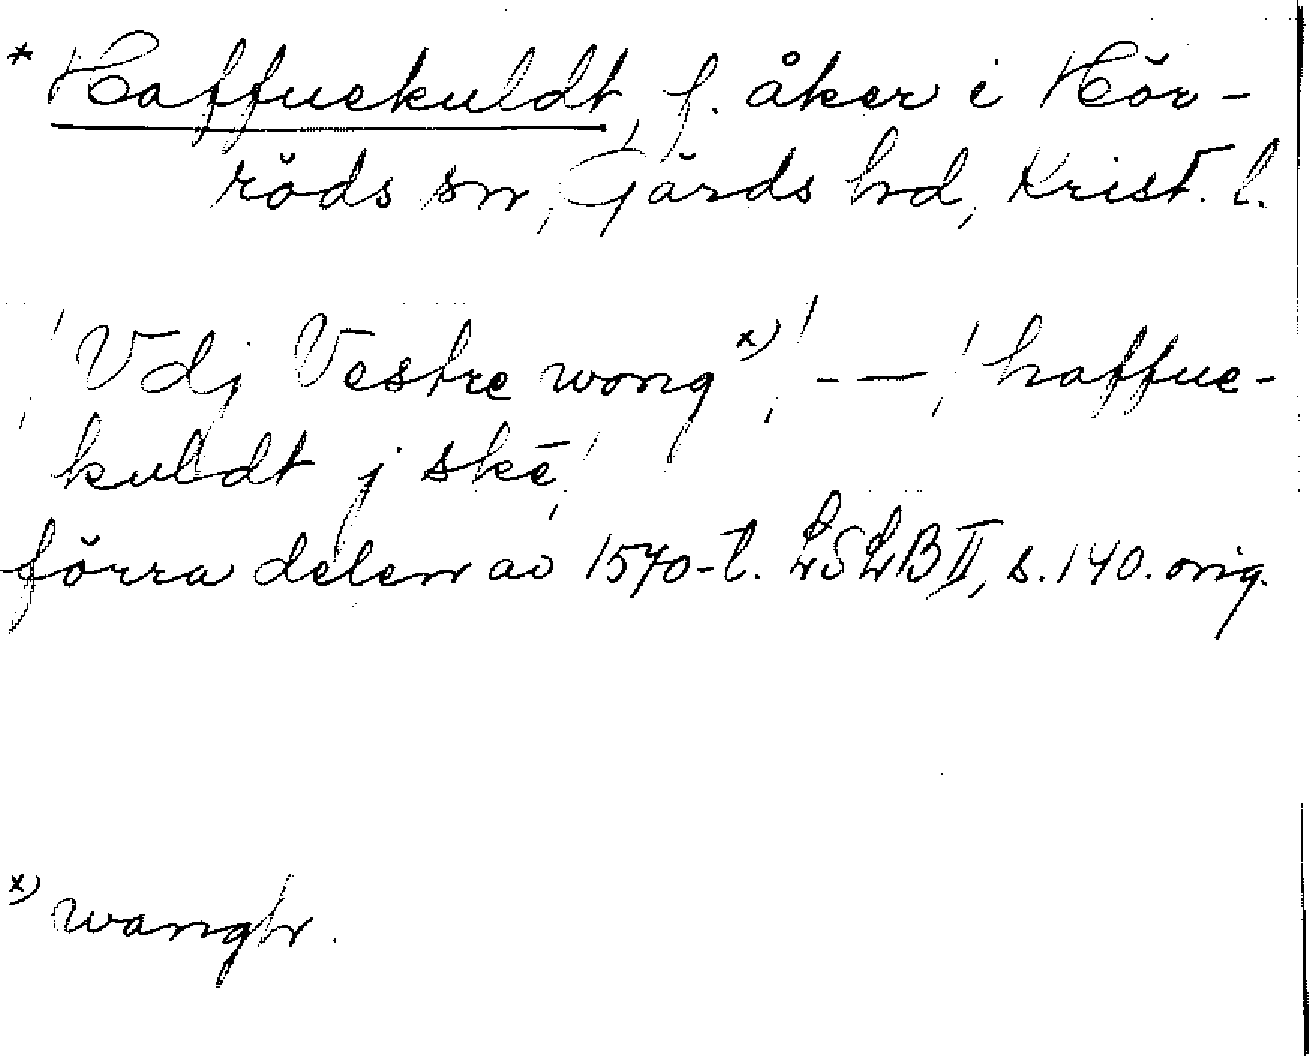 * Haffuekuldt, f. åker i Hör-
röds sn, Gärds hd, Krist. l.
¦ Vdj Vestre wong x) ¦ - — ¦ haffue-
kuldt j skē ¦
förra delen av 1570-t. LSLB II, s. 140. orig.
x) wangh.